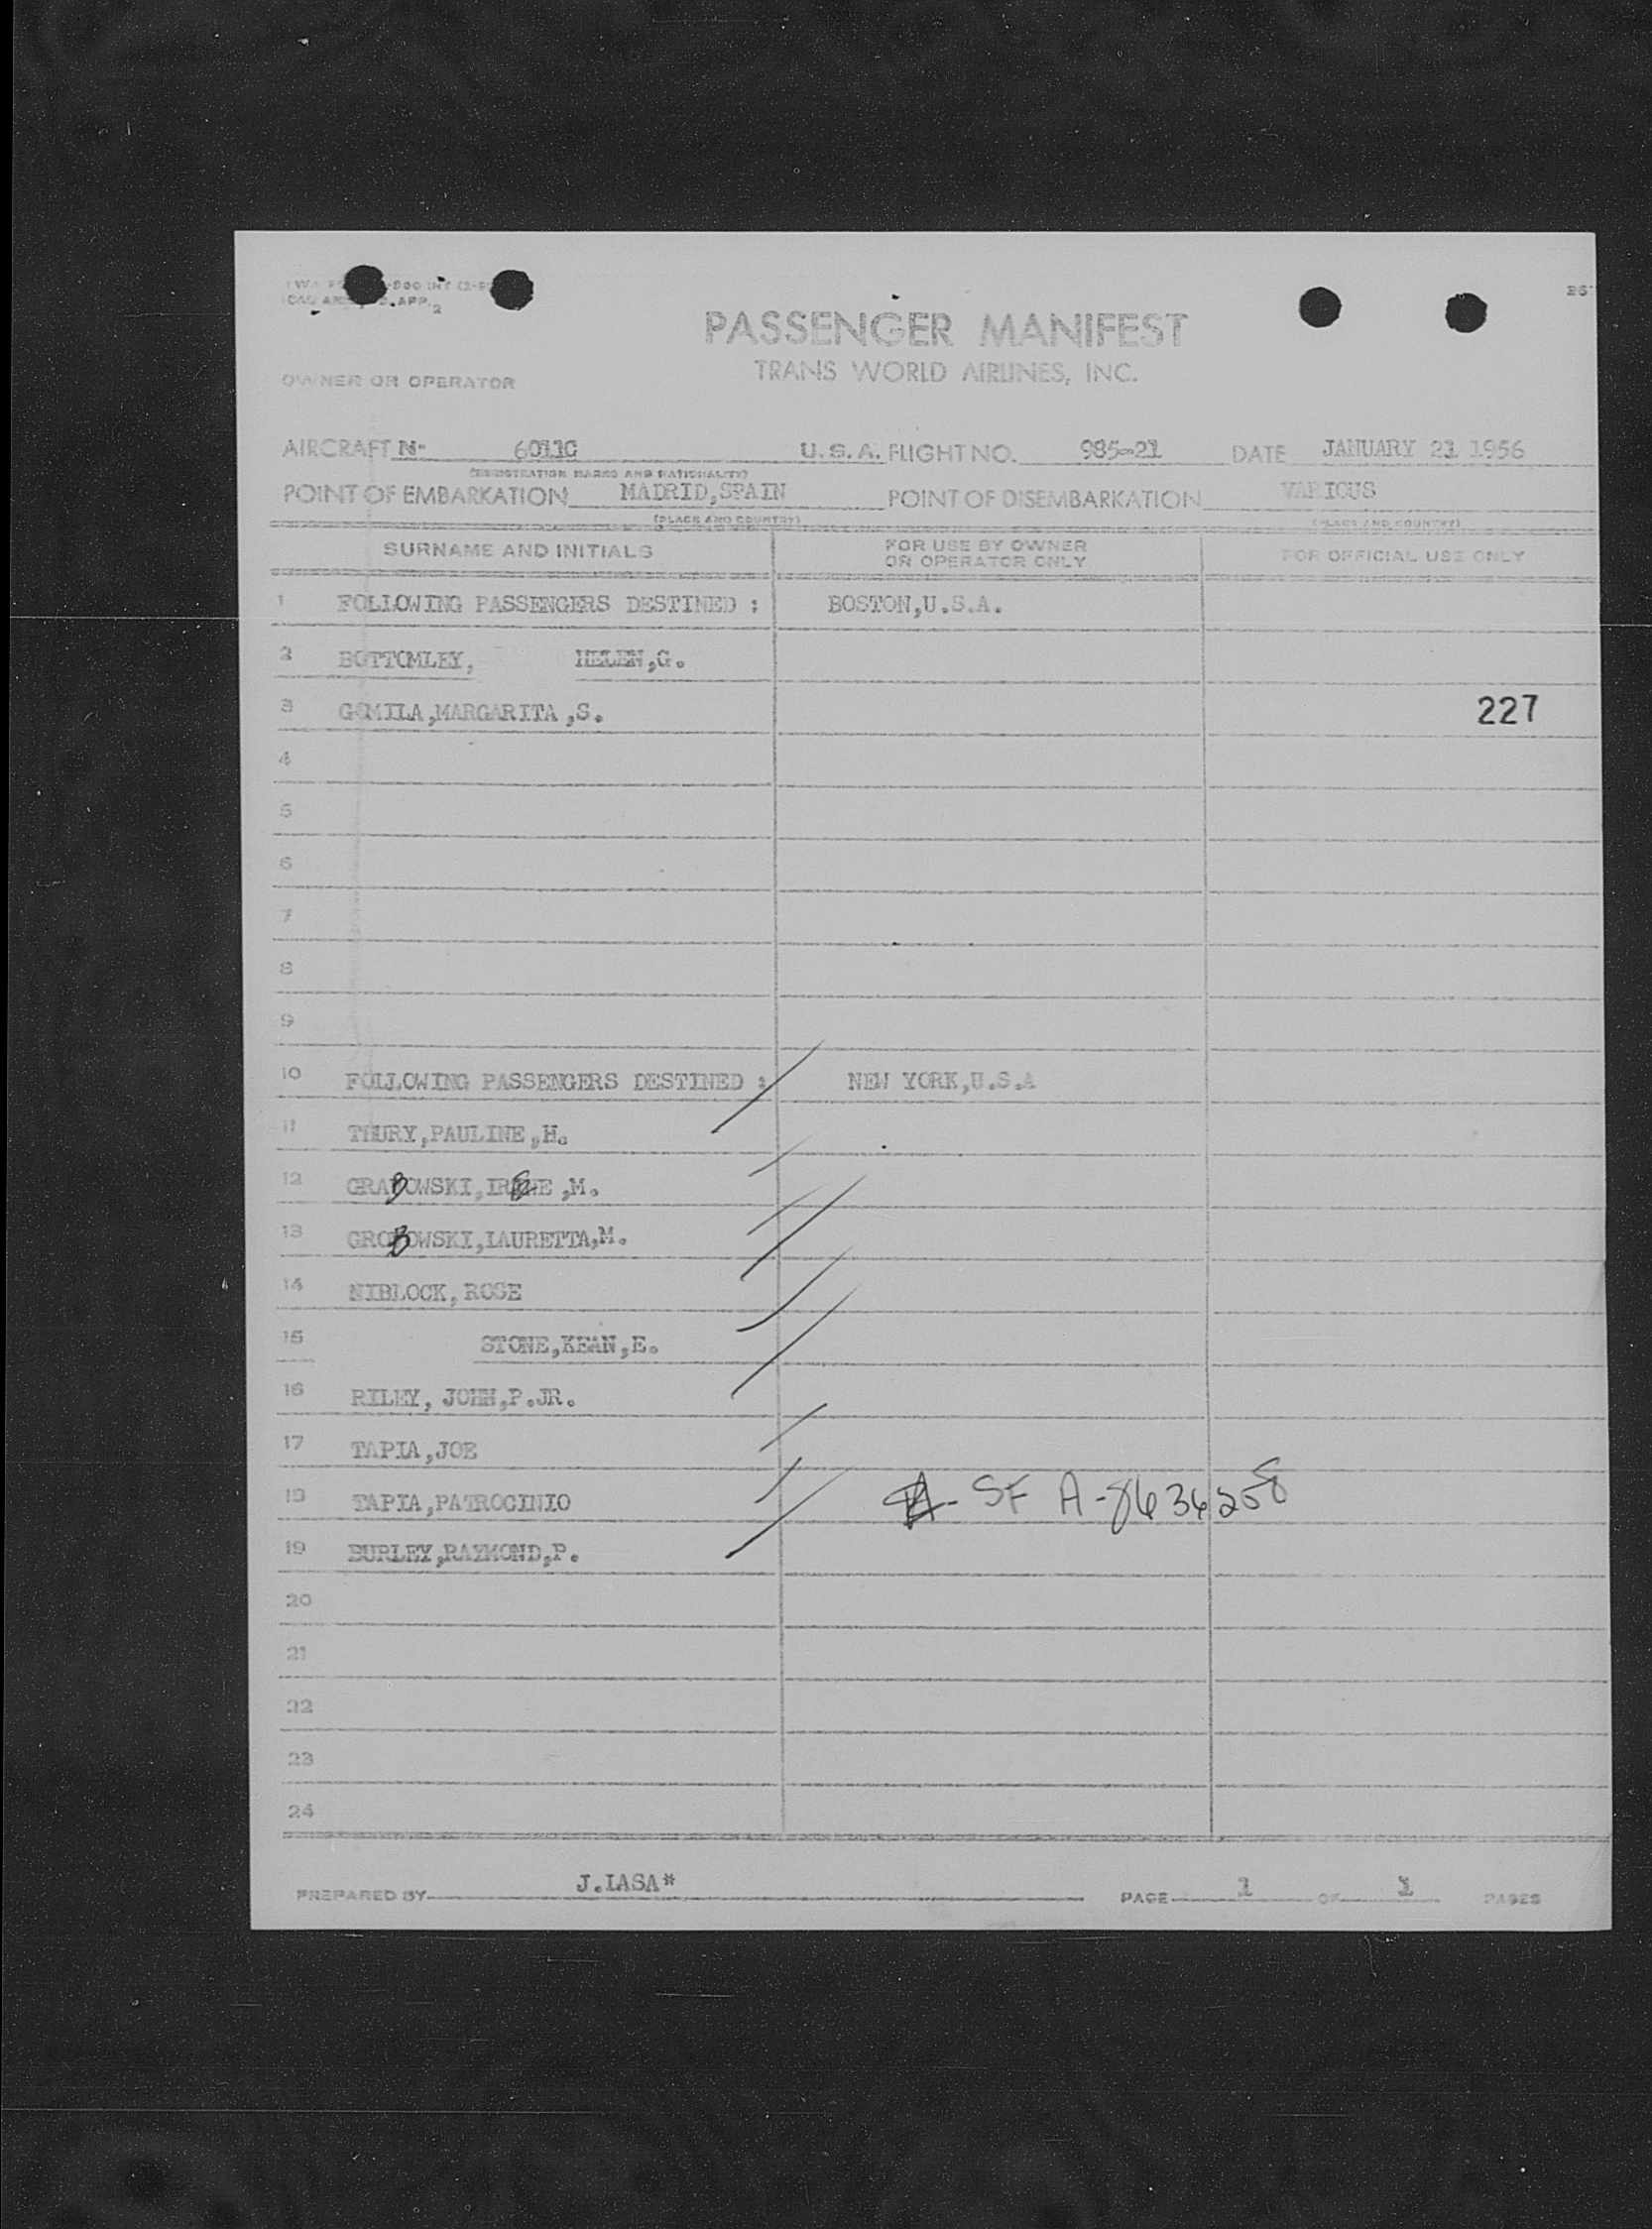 26
PASSENGER MANIFEST
TRANS WORLD AIRLINES, INC.
OWNER OR OPERATOR
AIRCRAFT N- 6011C U.S.A. FLIGHT NO. 985-21 DATE JANUARY 21 1956
(REGISTRATION MARKS AND NATIONALITY)
POINT OF EMBARKATION MADRID,SPAIN POINT OF DISEMBARKATION VARIOUS
(PLACE AND COUNTRY) (PLACE AND COUNTRY)
SURNAME AND INITIALS FOR USE BY OWNER OR OPERATOR ONLY FOR OFFICIAL USE ONLY
1 FOLLOWING PASSENGERS DESTINED : BOSTON,U.S.A.
2 BOTTOMLEY, HELEN,G.
3 GOMILA,MARGARITA,S. 227
4
5
6
7
8
9
10 FOLLOWING PASSENGERS DESTINED : NEW YORK,U.S.A
11 THURY,PAULINE,H.
12 GRABOWSKI,IRENE,M.
13 GROBOWSKI,LAURETTA,M.
14 NIBLOCK, ROSE
15 STONE,KEAN,E.
16 RILEY, JOHN,P.JR.
17 TAPIA,JOE
18 TAPIA,PATROCINIO SF A-8636258
19 BURLEY,RAYMOND,P.
20
21
22
23
24
PREPARED BY J.LASA* PAGE 1 OF 1 PAGES